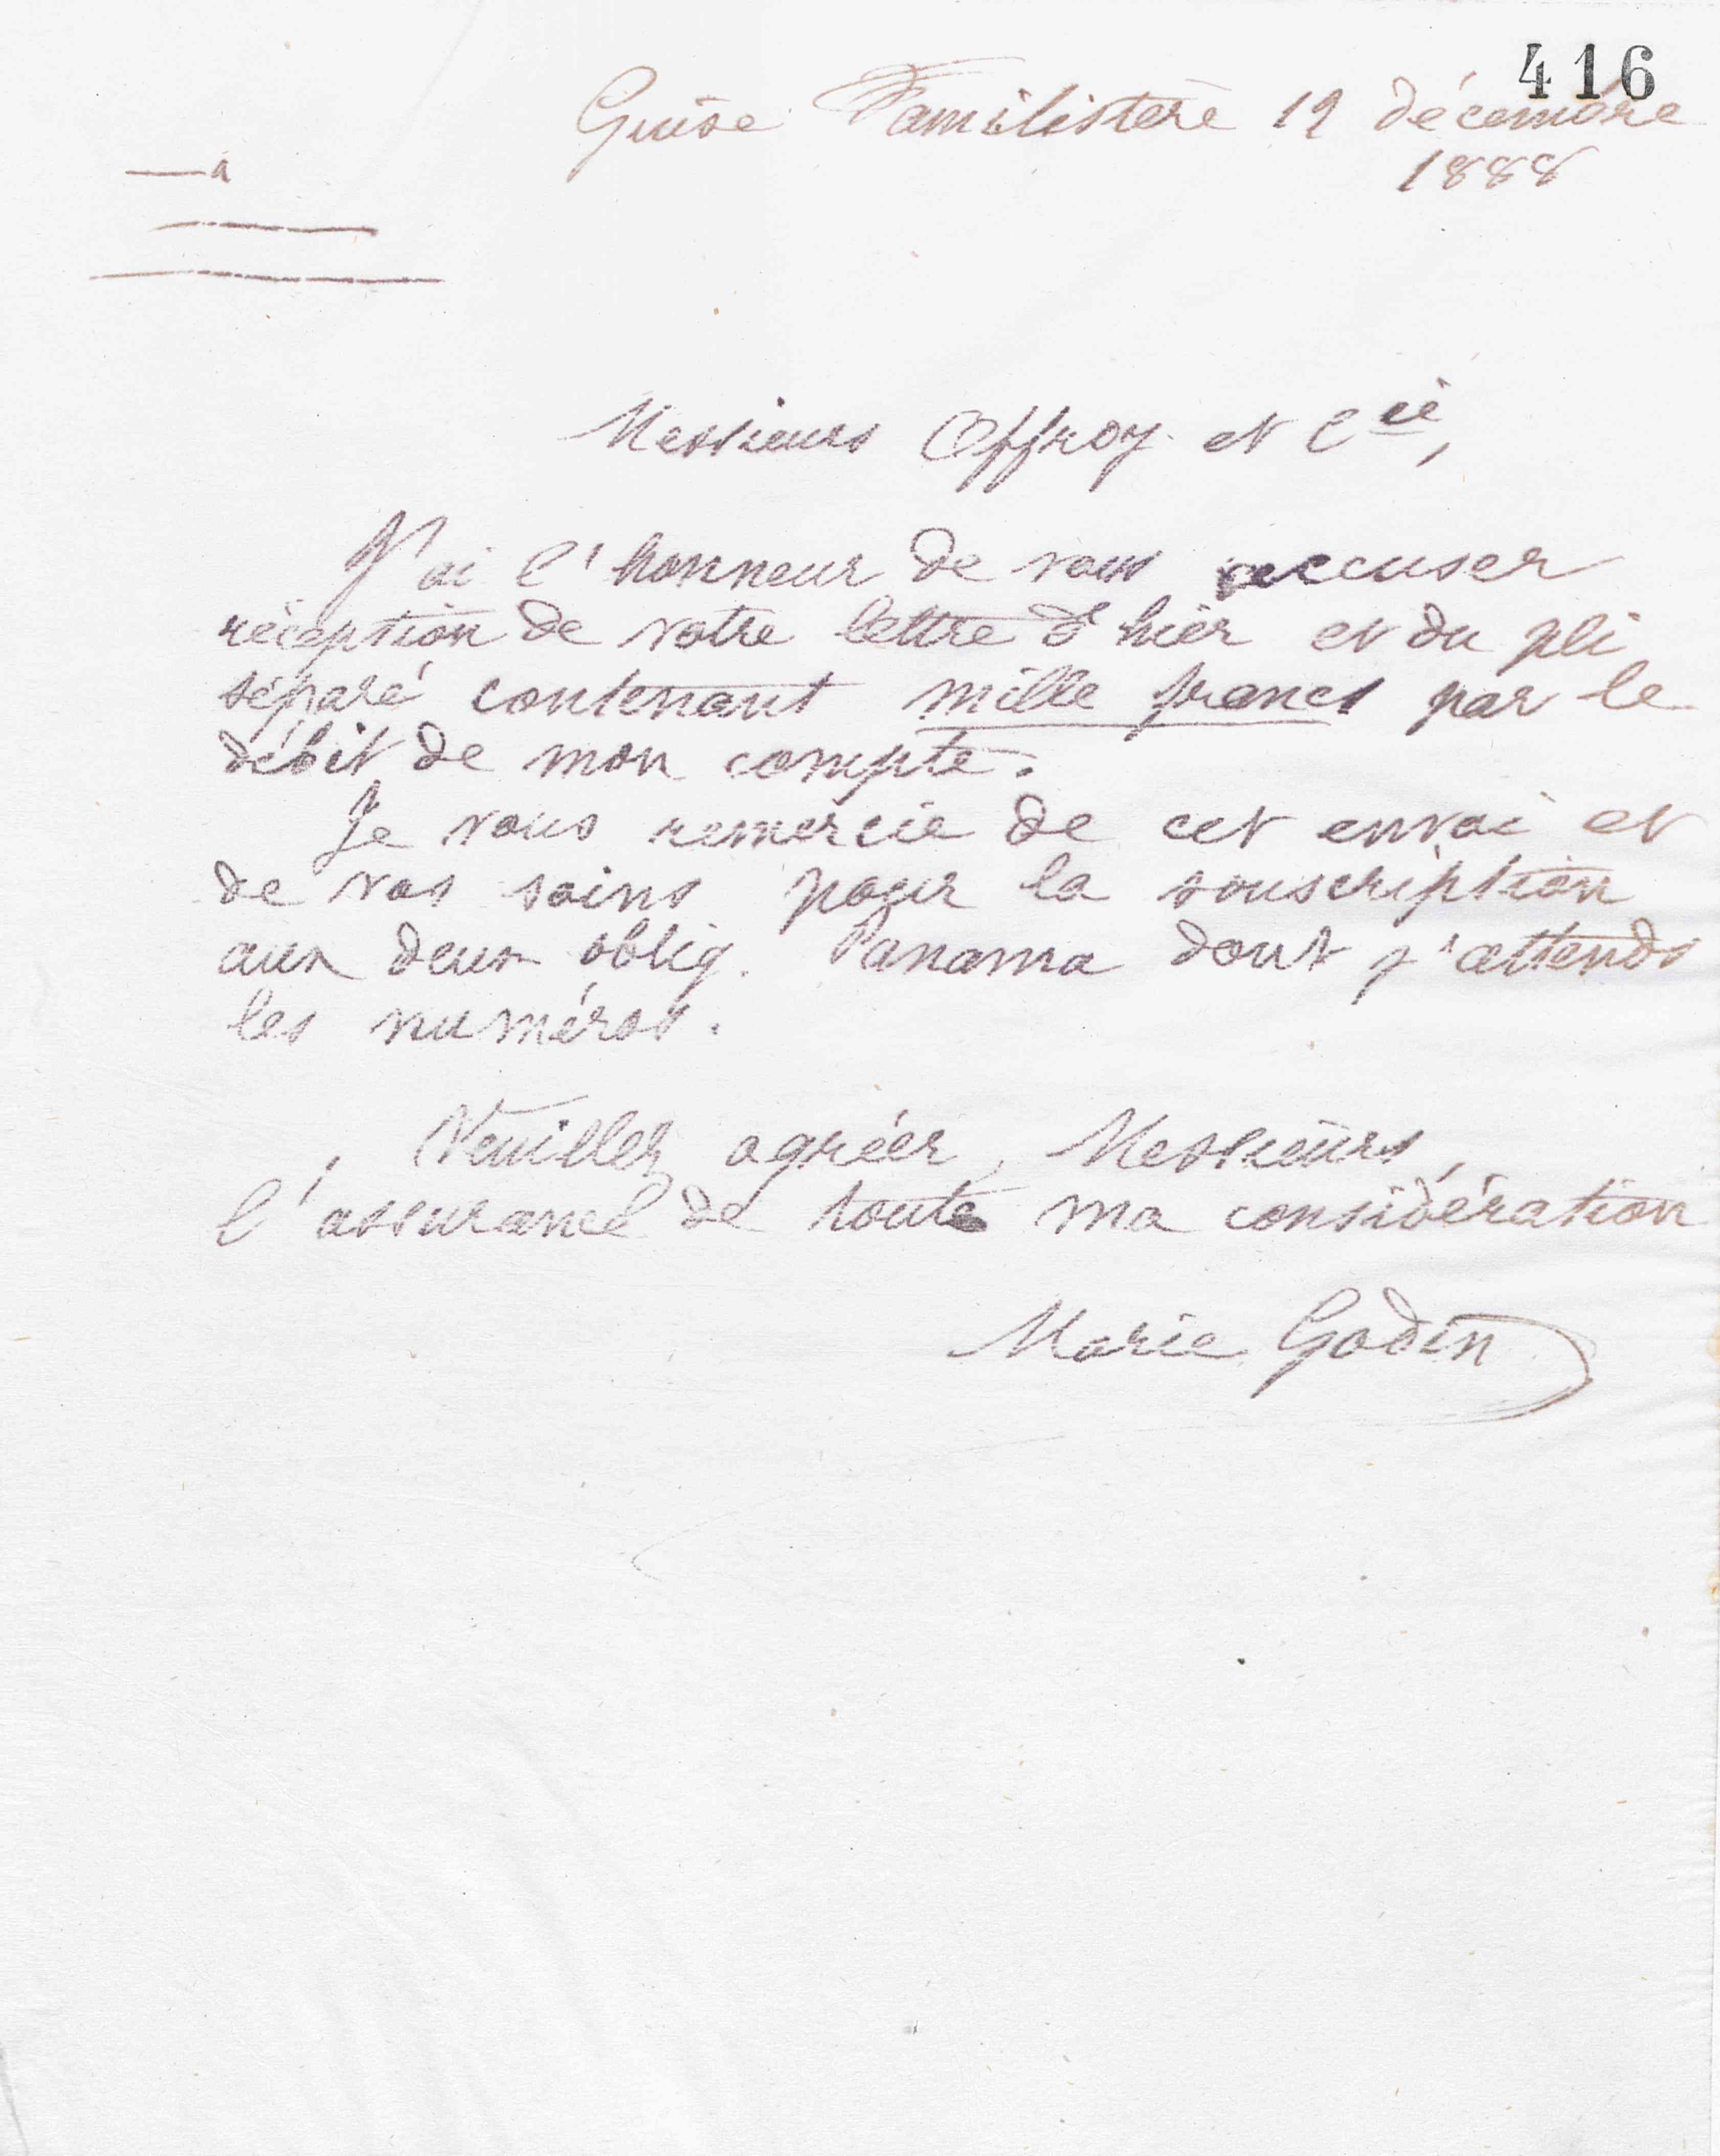 416
Guise Familistère 19 décembre
1888
Messieurs Offroy et Cie,
J'ai l'honneur de vous accuser
réception de votre lettre d'hier et du pli
séparé contenant mille francs par le
débit de mon compte.
Je vous remercie de cet envoi et
de vos soins pour la souscription
aux deux oblig. Panama dont j'attends
les numéros.
Veuillez agréer, Messieurs,
l'assurance de toute ma considération
Marie Godin